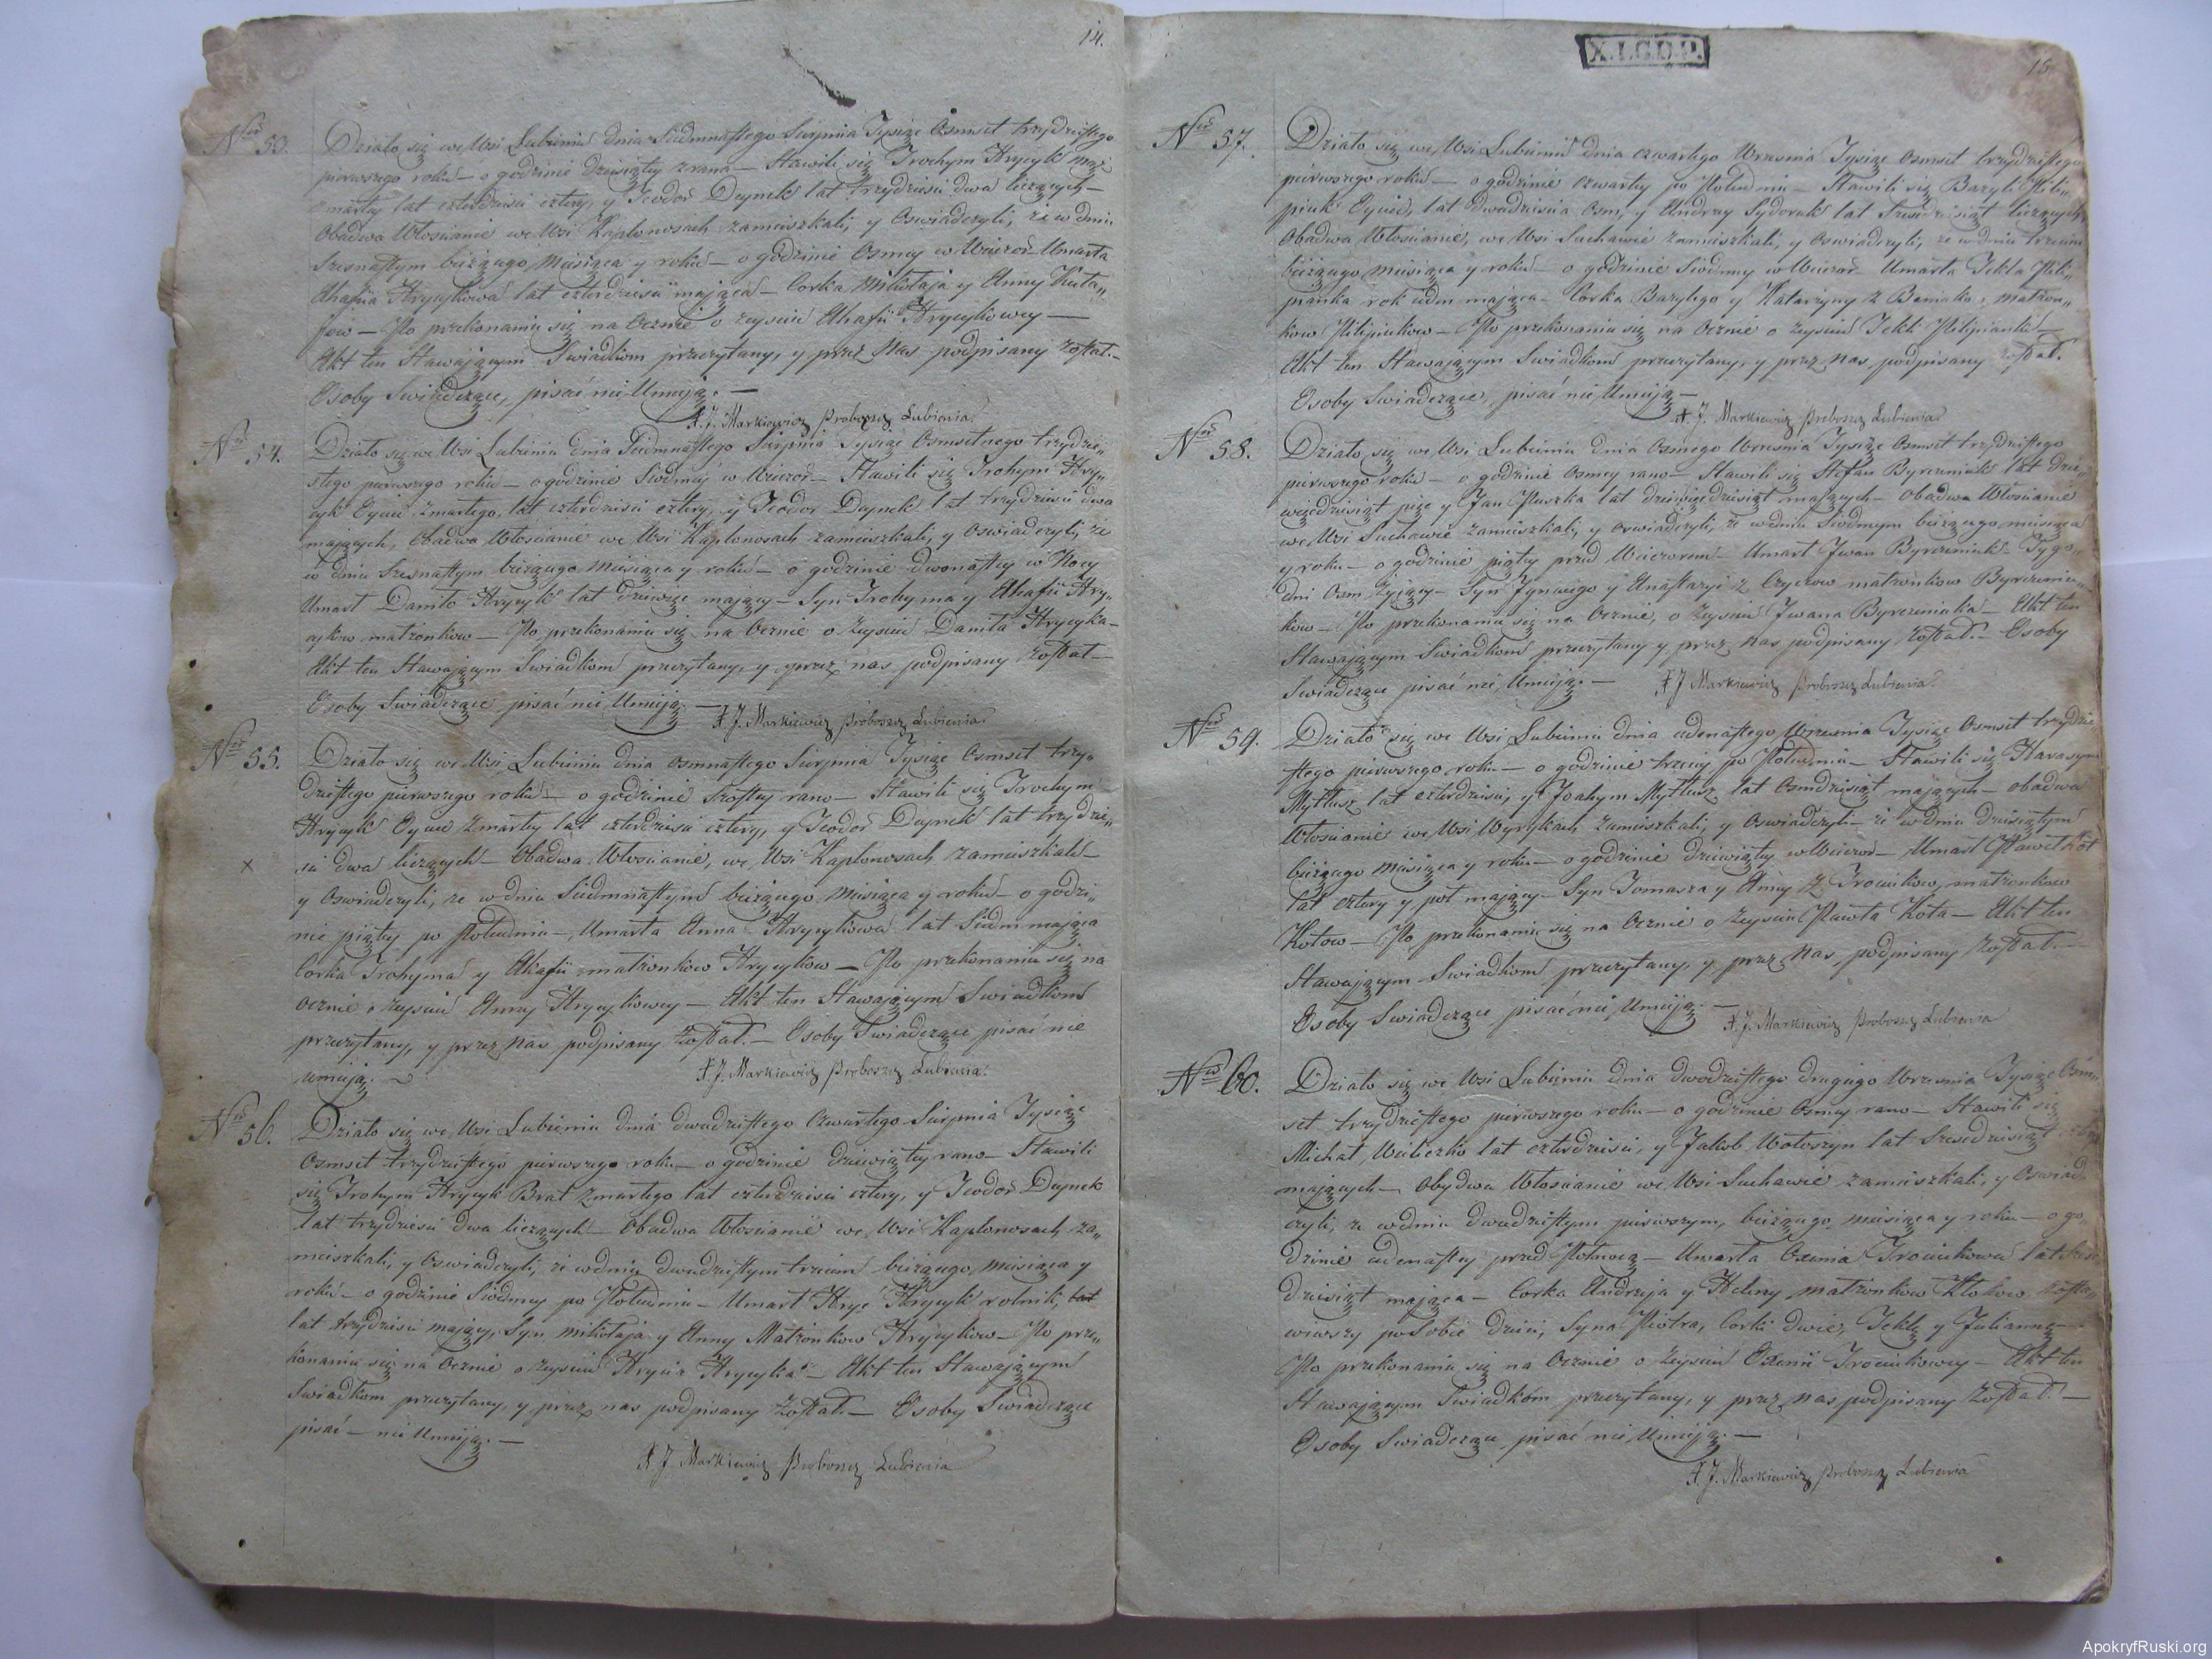 14.
Nrō 53. Działo się we Wsi Lubieniu dnia Siedmnastego Sierpnia Tysiąc Osmset trzydziestego
pierwszego roku — o godzinie dziewiątey z rana — Stawili się Trochym Hrycyk mąż
zmarłej lat czterdzieści cztery, y Teodor Daynek lat trzydzieści dwa liczących —
Obadwa Włościanie we Wsi Kaplonosach zamieszkali, y Oswiadczyli, ze w dniu
Szesnastym bieżącego Miesiąca y roku — o godzinie Osmey w Wieczor Umarła
Ahafia Hrycykowa lat czterdzieści mająca — Corka Mikołaja y Anny Kuta„
jow — Po przekonaniu się na Ocznie o zeysciu Ahafii Hrycykowey —
Akt ten Stawającym Swiadkom przeczytany, y przez Nas podpisany został. —
Osoby Swiadczące, pisać nie Umieją. —
X. J. Markiewicz Proboszcz Lubienia
Nrō 54. Działo się we Wsi Lubieniu dnia Siedmnastego Sierpnia Tysiąc Osmsetnego trzydzie„
stego pierwszego roku — o godzinie Siodmej w Wieczor — Stawili się Trohym Hry„
cyk Oyciec zmarłego, lat czterdzieści cztery, y Teodor Daynek lat trzydzieści dwa
mających, Obadwa Włościanie we Wsi Kaplonosach zamieszkali, y Oswiadczyli, ze
w dniu Szesnastym bieżącego Miesiąca y roku — o godzinie dwonastey w Nocy
Umarł Daniło Hrycyk lat dziewięć mający — Syn Trohyma y Ahafii Hry„
cykow małżonkow — Po przekonaniu się na Ocznie o Zeysciu Daniła Hrycyka —
Akt ten Stawającym Swiadkom przeczytany, y przez nas podpisany został —
Osoby Swiadczące pisać nie Umieją. —
X. J. Markiewicz Proboszcz Lubienia
Nrō 55. Działo się we Wsi Lubieniu dnia osmnastego Sierpnia Tysiąc Osmset trzy„
dziestego pierwszego roku — o godzinie Szostey rano — Stawili się Trochym
Hrycyk Oyciec zmarłey lat czterdzieści cztery, y Teodor Daynek lat trzydzie„
ści dwa liczących — Obadwa Włościanie, we Wsi Kaplonosach zamieszkali —
y Oswiadczyli, ze w dniu Siedmnastym bieżącego Miesiąca y roku — o godzi„
nie piątey po południu — Umarła Anna Hrycykowa lat Siedm mająca
Corka Trohyma y Ahafii małżonkow Hrycykow — Po przekonaniu się na
ocznie o zeysciu Anny Hrycykowey — Akt ten Stawającym Swiadkom
przeczytany, y przez Nas podpisany został. — Osoby Swiadczące pisać nie
umieją. —
X. J. Markiewicz Proboszcz Lubienia
Nrō 56. Działo się we Wsi Lubieniu dnia dwudziestego Czwartego Sierpnia Tysiąc
Osmset trzydziestego pierwszego roku — o godzinie dziewiątey rano — Stawili
się Trohym Hrycyk Brat zmarłego lat czterdzieści cztery, y Teodor Daynek
lat trzydzieści dwa liczących — Obadwa Włościanie we Wsi Kaplonosach za„
mieszkali, y Oswiadczyli, ze w dniu dwudziestym trzecim bieżącego Miesiąca y
roku — o godzinie Siodmey po Południu — Umarł Hryć Hrycyk rolnik, lat
lat trzydzieści mający, Syn Mikołaja y Anny Małżonkow Hrycykow — Po prze„
konaniu się na Ocznie o zeysciu Hrycia Hrycyka — Akt ten Stawającym
Swiadkom przeczytany, y przez nas podpisany został. — Osoby Swiadczące
pisać — nie Umieją. —
X. J. Markiewicz Proboszcz Lubienia
X.I.G.D.P.
15
Nrō 57. Działo się we Wsi Lubieniu dnia czwartego Wrzesnia Tysiąc Osmset trzydziestego
pierwszego roku — o godzinie Czwartey po Południu — Stawili się Bazyli Pili„
piuk Oyciec, lat dwadzieścia Osm, y Andrzey Sydoruk lat Szescdziesiąt liczących,
Obadwa Włościanie, we Wsi Suchawie zamieszkali, y Oswiadczyli, ze w dniu trzecim
bieżącego Miesiąca y roku — o godzinie Siodmey w Wieczor Umarła Tekla Pili„
pianka rok ieden mająca — Corka Bazylego y Katarzyny z małżon„
kow Pilipiukow — Po przekonaniu się na Ocznie o zeysciu Tekli Pilipianki —
Akt ten Stawającym Swiadkom przeczytany, y przez Nas podpisany został.
Osoby Swiadczące, pisać nie Umieją —
X. J. Markiewicz Proboszcz Lubienia
Nrō 58. Działo się we Wsi Lubieniu dnia Osmego Wrzesnia Tysiąc Osmset trzydziestego
pierwszego roku — o godzinie Osmey rano — Stawili się Stefan Byrczeniuk lat dzie„
więcdziesiąt pięc y Jan Puszka lat dziewięcdziesiąt mających — Obadwa Włościanie
we Wsi Suchawie zamieszkali, y oswiadczyli, ze w dniu Siodmym bieżącego miesiąca
y roku — o godzinie piątey przed Wieczorem — Umarł Jwan Byrczeniuk Tygo„
dni Osm żyjący — Syn y Anastazyi z małżonkow Byrczeniu„
kow — Po przekonaniu się na Ocznie, o Zeysciu Jwana Byrczeniuka — Akt ten
Stawającym Swiadkom przeczytany y przez nas podpisany został. — Osoby
Swiadczące pisać nie Umieją. — X J Markiewicz Proboszcz Lubienia
Nrō 59. Działo się we Wsi Lubieniu dnia iedenastego Wrzesnia Tysiąc Osmset trzydzie„
stego pierwszego roku — o godzinie trzeciej po Południu — Stawili się Harasym
Mytlusz lat czterdzieści, y Joahym Mytlusz lat Osmdziesiąt mających — obadwa
Włościanie we Wsi Wyrykach zamieszkali, y Oswiadczyli — ze w dniu dziesiątym
bieżącego miesiąca y roku — o godzinie dziewiątey w Wieczor — Umarł Paweł Kot
lat cztery y poł mający — Syn Tomasza y Anny z Trociukow małżonkow
Kotow — Po przekonaniu się na Ocznie o Zeysciu Pawła Kota — Akt ten
Stawającym Swiadkom przeczytany, y przez Nas podpisany został. —
Osoby Swiadczące pisać nie Umieją. —
X. J. Markiewicz Proboszcz Lubienia
Nrō 60. Działo się we Wsi Lubieniu dnia dwudziestego drugiego Wrzesnia Tysiąc Osm„
set trzydziestego pierwszego roku — o godzinie Osmey rano — Stawili się
Michał Waliczko lat czterdzieści, y Jakob Wołoszyn lat Szescdziesiąt
mających — Obydwa Włościanie we Wsi Suchawie zamieszkali, y Oswiad„
czyli, ze w dniu dwudziestym pierwszym, bieżącego miesiąca y roku — o go„
dzinie iedenastey przed Połnocą — Umarła Oxenia Trociukowa lat
dziesiąt mająca — Corka Andrzeja y Heleny małżonkow zosta„
wiwszy po Sobie dzieci, Syna Piotra, Corki dwie, Teklę y Juliannę —
Po przekonaniu się na Ocznie o Zeysciu Oxenii Trociukowey — Akt ten
Stawającym Swiadkom przeczytany, y przez Nas podpisany został. —
Osoby Swiadczące pisać nie Umieją. —
X. J. Markiewicz Proboszcz Lubienia
ApokryfRuski.org